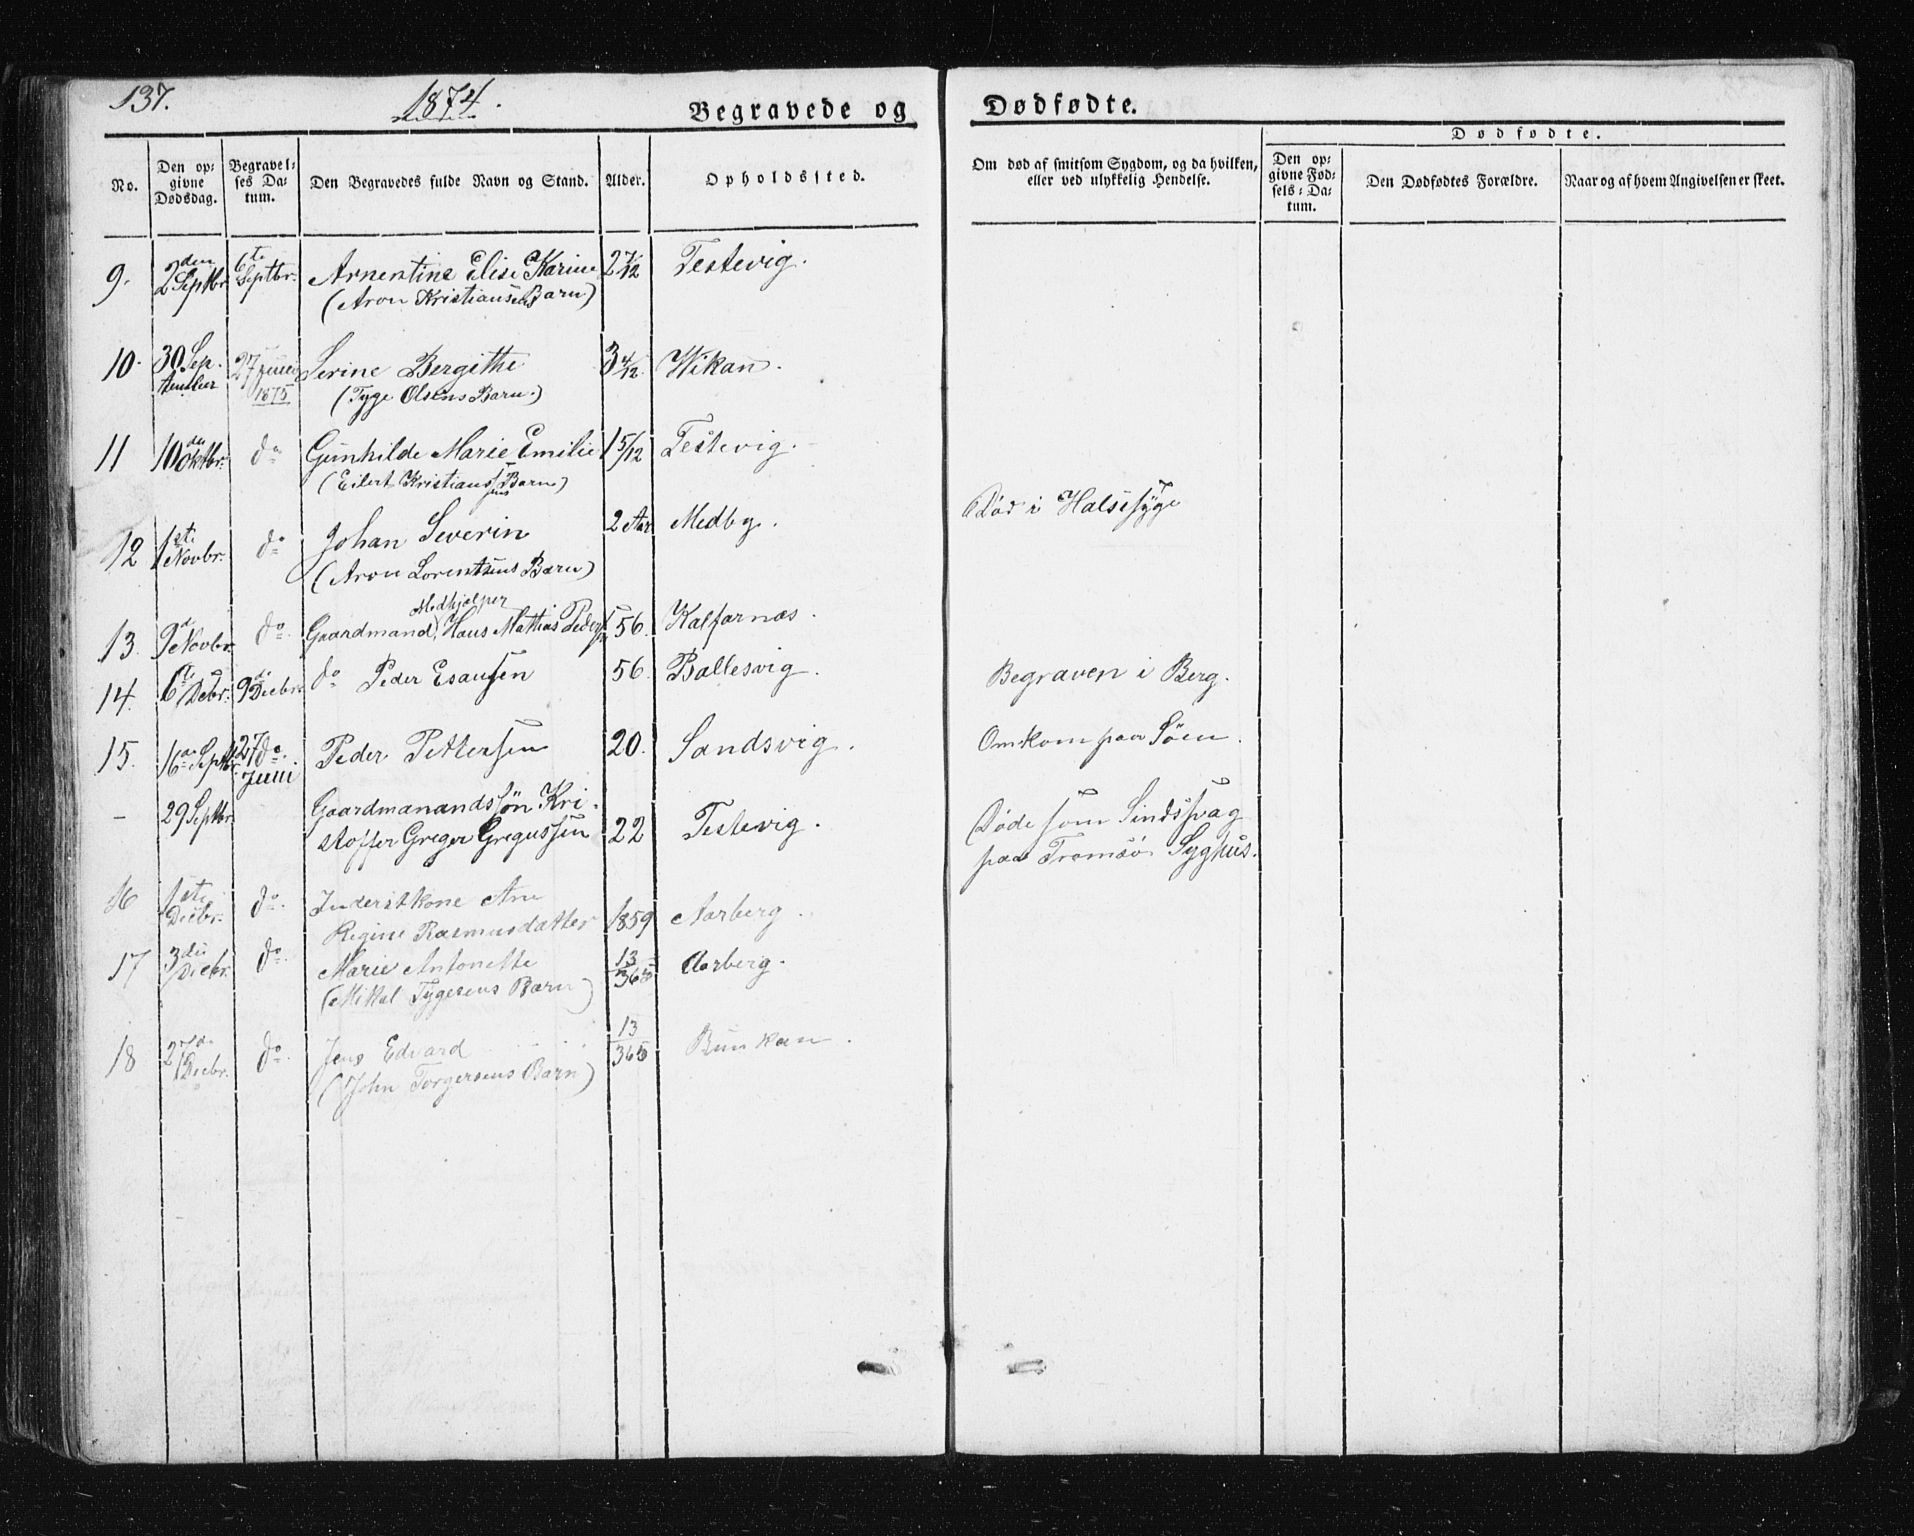 137.
1874.
Begravede og Dødfødte.
No.
Den opgivne Dødsdag.
Begravelses Datum.
Den Begravedes fulde Navn og Stand.
Alder.
Opholdssted.
Om død af smitsom Sygdom, og da hvilken, eller ved ulykkelig Hendelse.
Dødfødte.
Den opgivne Fødsels-Datum.
Den Dødfødtes Forældre.
Naar og af hvem Angivelsen er skeet.
9. 2den Septbr. 6te Septbr. Arnentine Elise Karine 2 7/12 Testevig.
(Aron Kristiansens Barn)
10. 30 September 27 Juni 1875 Serine Bergithe 3 4/12 Wikan.
(Tyge Olsens Barn.)
11 10de Oktbr. do Gunhilde Marie Emilie 1 5/12 Testevig.
(Eilert Kristianssens Barn)
12 1ste Novbr. do Johan Severin 2 Aar Medby. Død i Halsesyge
(Aron Lorentsens Barn)
Medhjælper
13. 9d Novbr. do. Gaardmand, Hans Mathias Peders 56. Kalfarnæs.
14. 6te Debr. 9de Decbr. do Peder Esaussen 56. Ballesvig. Begraven i Berg.
15. 16de Septbr. 27 do. Juni Peder Pettersen 20. Sandsvig. Omkom paa Søen.
- 29 Septbr. Gaardmanandssøn Kri-
stoffer Greger Gregussen 22 Testevig. Døde som Sindssvag
paa Tromsø Syghus.
16 1ste Decbr. do. Inderstkone Ane
Regine Rasmusdatter 1859 Aarberg.
17 3die Decbr. do. Marie Antonette 13/365 Aarberg.
(Mikal Tygesens Barn)
18 27de Decbr. do. Jens Edvard 13/365 Bunkan.
(John Torgersens Barn)